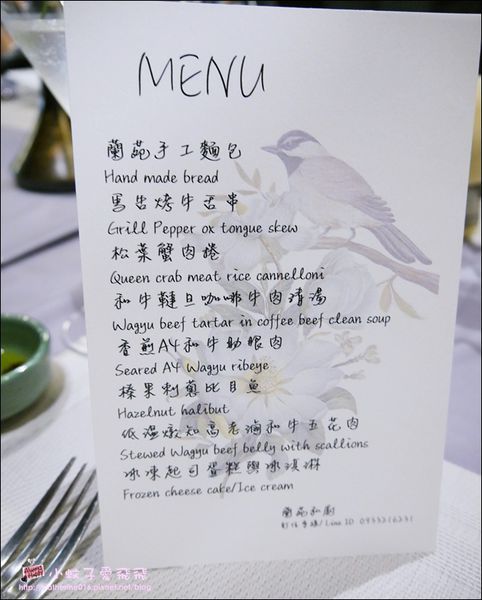 MENU
蘭苑手工麵包
Hand made bread
馬告烤牛舌串
Grill Pepper ox tongue skew
松葉蟹肉捲
Queen crab meat rice cannelloni
和牛韃旦咖啡牛肉清湯
Wagyu beef tartar in coffee beef clean soup
香煎A4和牛肋眼肉
Seared A4 Wagyu ribeye
榛果刺蔥比目魚
Hazelnut halibut
低溫燉知高老滷和牛五花肉
Stewed Wagyu beef belly with scallions
冰凍起司蛋糕與冰淇淋
Frozen cheese cake/Ice cream
蘭苑私廚
訂位專線/Line ID 0933216231
小蚊子愛飛飛
http://katherine016.pixnet.net/blog